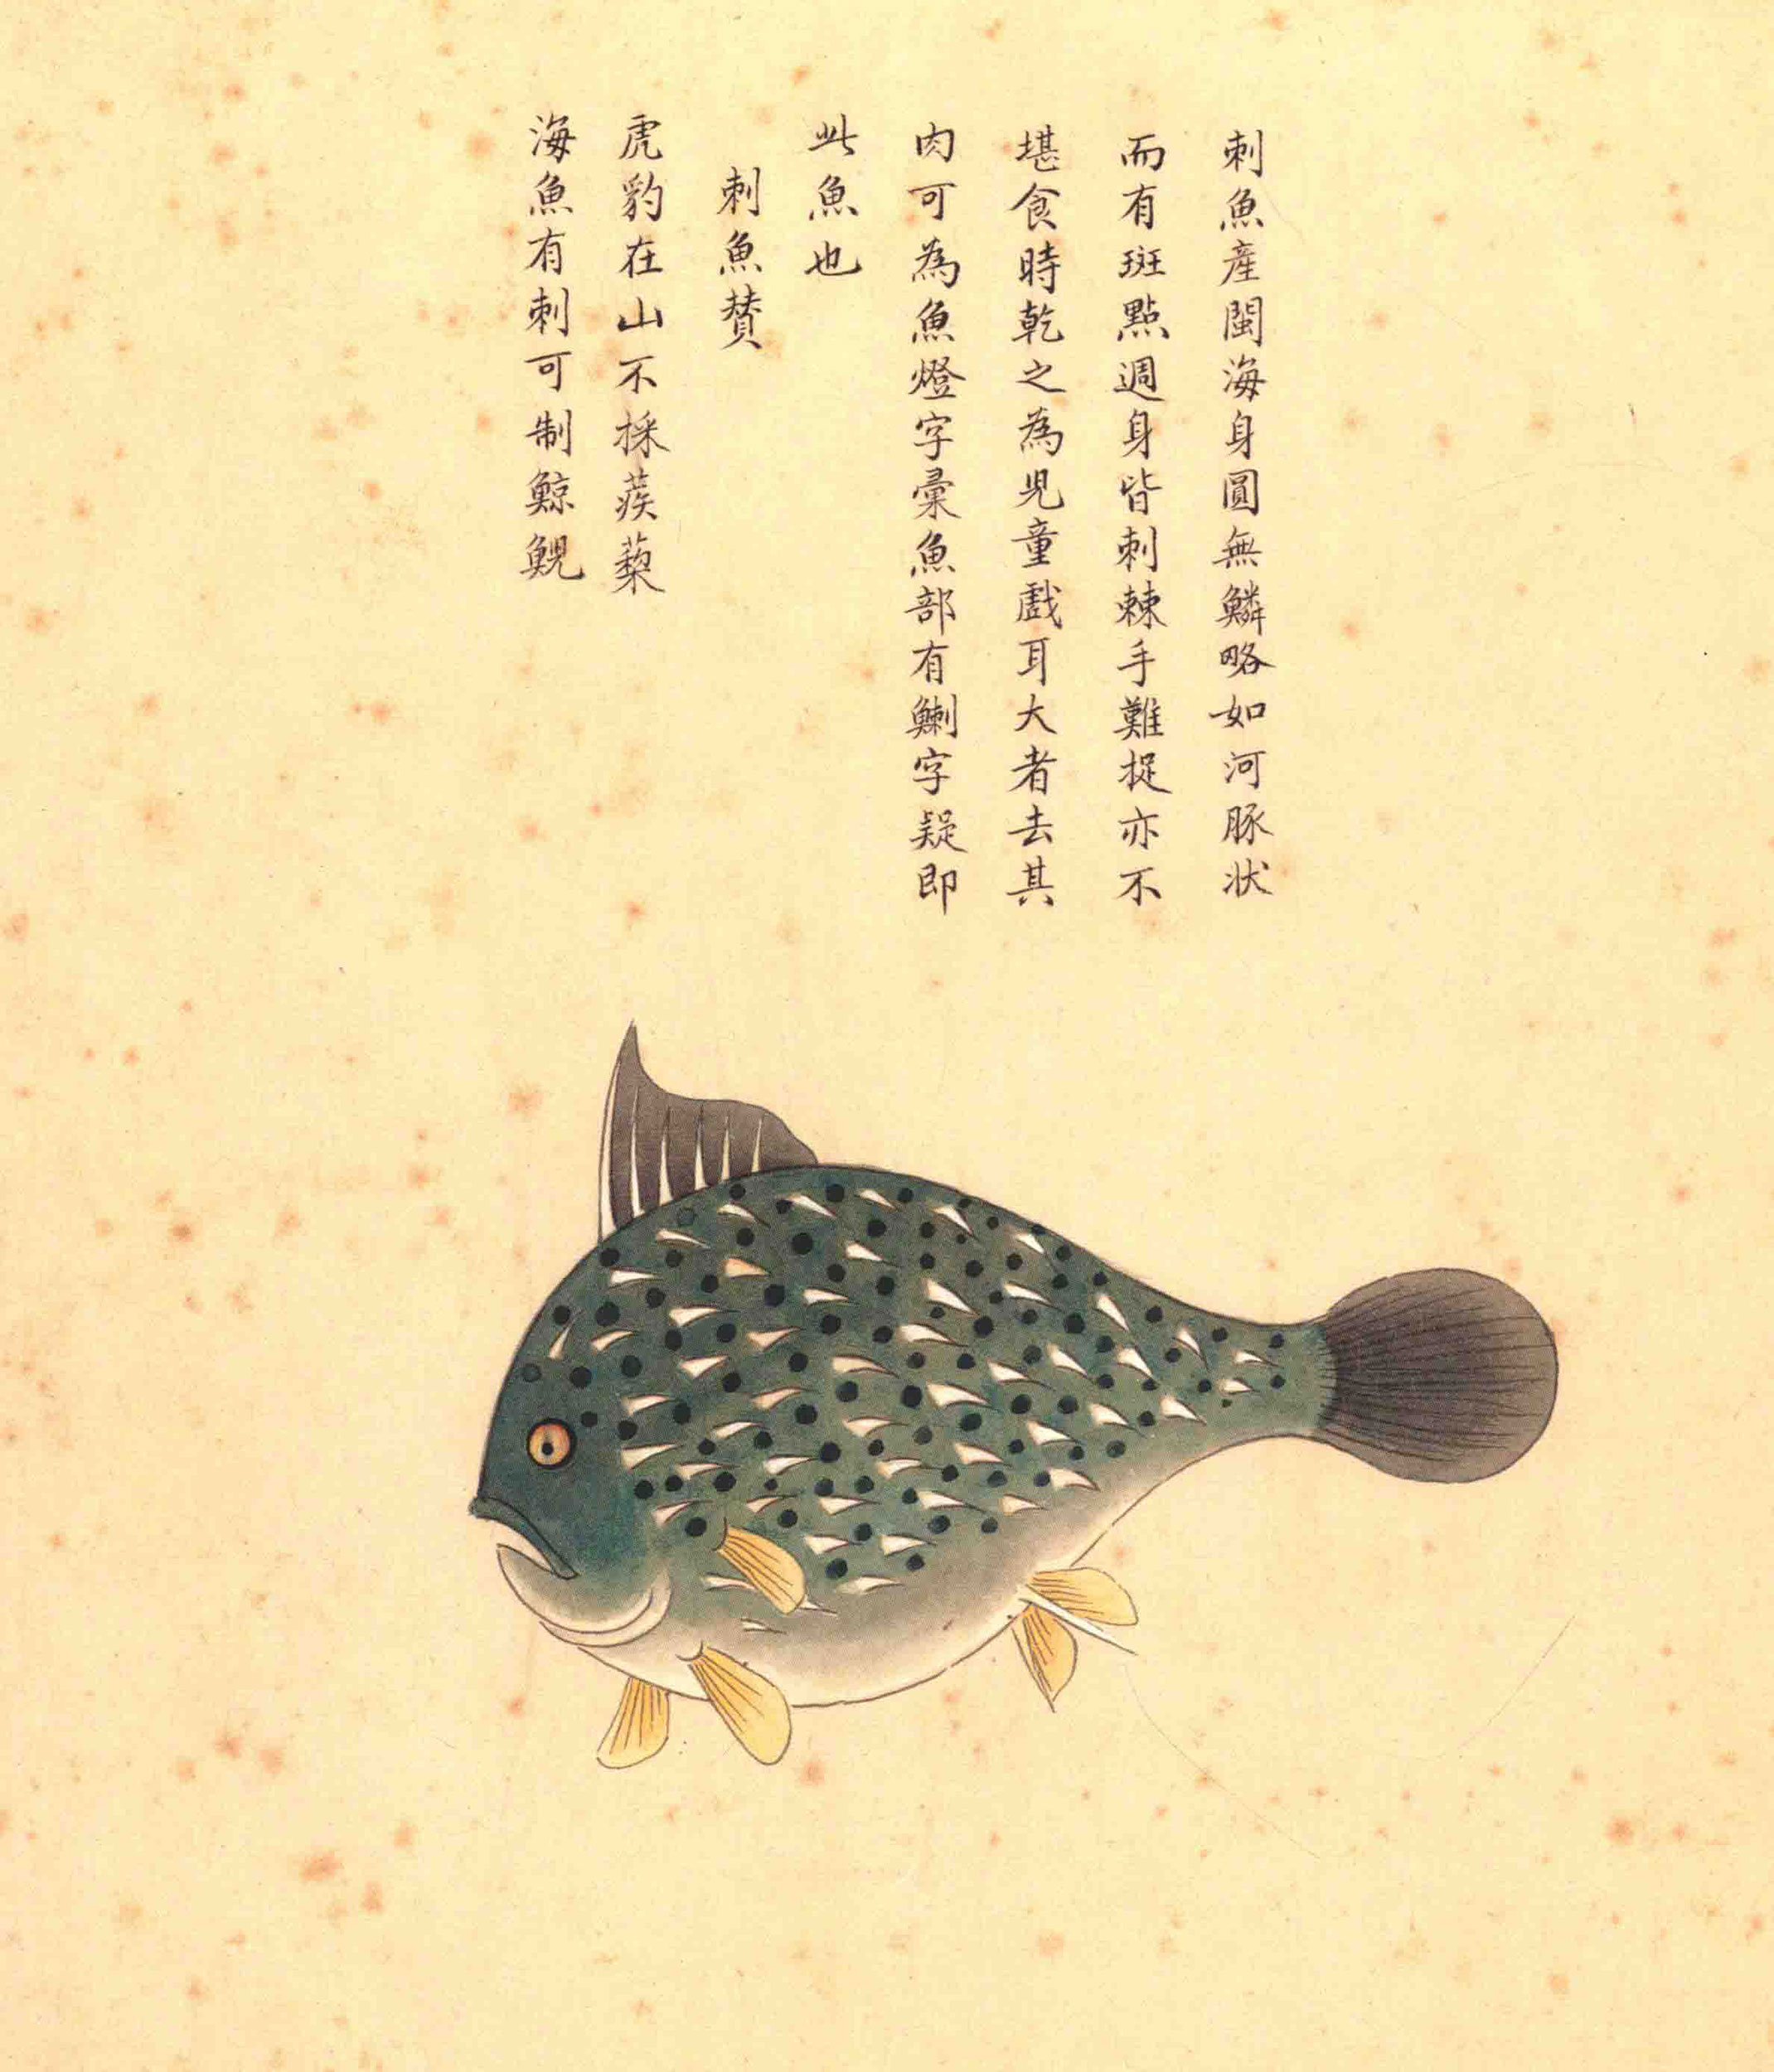 刺魚產閩海身圓無鱗略如河豚狀
而有斑點週身皆刺棘手難捉亦不
堪食時乾之為兒童戲耳大者去其
肉可為魚燈字彙魚部有鯻字疑即
此魚也
刺魚賛
虎豹在山不採蒺藜
海魚有刺可制鯨鯢